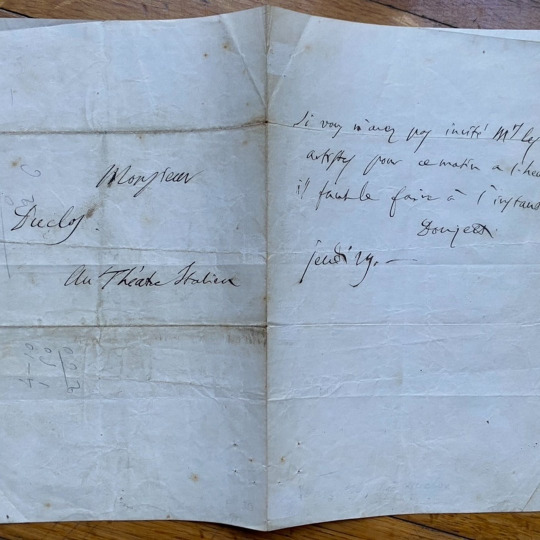 Monsieur
Duclos.
Au Théatre Italien
Si vous n'avez pas invité Mrs les
artistes pour ce matin a 1. heu
il faut le faire à l'instant
jeudi 29. —